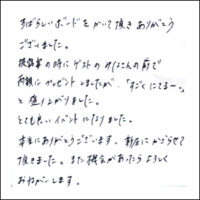 すばらしいボードをかいて頂きありがとう
ございました。
披露宴の時にゲストのみなさんの前で
両親にプレゼントしましたが、「すごくにてる〜」
と盛り上がりました。
とても良いイベントになりました。
本当にありがとうございます。新居にかざらせて
頂きました。また機会があったらよろしく
おねがいします。